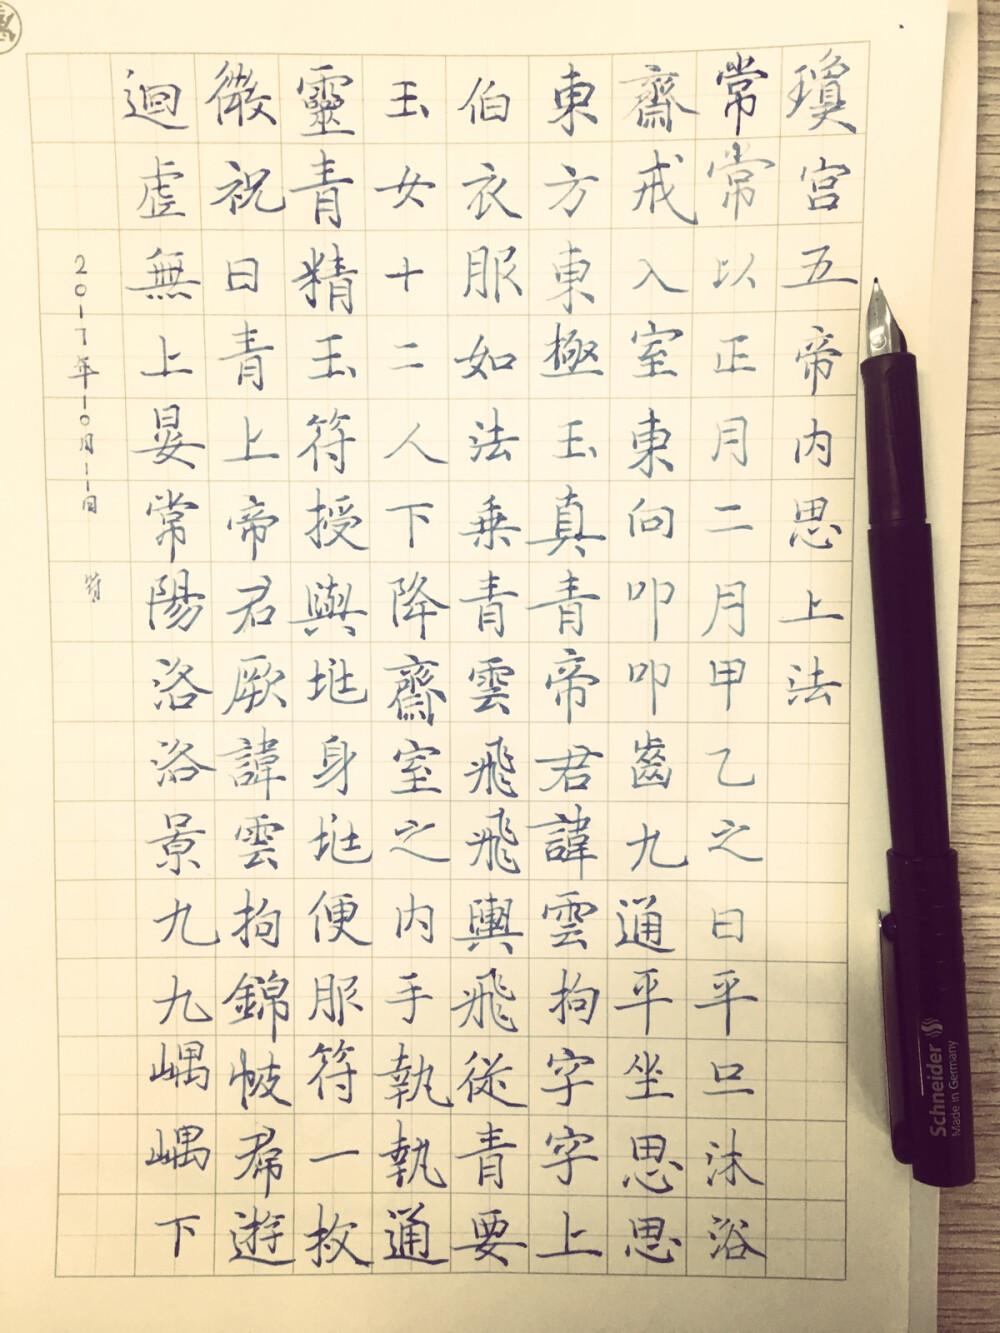 瓊宮五帝内思上法
常常以正月二月甲乙之日平旦沐浴
齋戒入室東向叩叩齒九通平坐思思
東方東極玉真青帝君諱雲拘字字上
伯衣服如法乗青雲飛飛輿飛從青要
玉女十二人下降齋室之内手執執通
靈青精玉符授與地身地便服符一枚
微祝曰青上帝君厥諱雲拘錦帔君遊
迴虛無上晏常陽洛洛景九九嵎嵎下
2017年10月11日
Schneider
Made in Germany